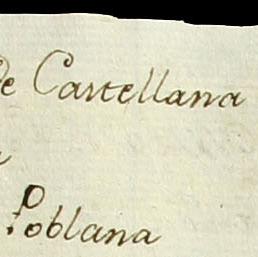 de Castellana
Poblana